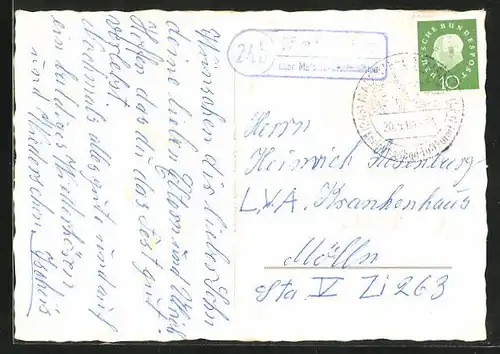 Wünschen dir lieber Sohn
deine lieben Eltern und Ulrich
Hoffen das du das Fest gut
verlebst.
Nochmals alles gute und auf
ein baldiges Wiederhören
und Wiedersehn.
24b
über
DEUTSCHE BUNDESPOST
10
Herrn
Heinrich
L.V.A. Krankenhaus
Mölln
Sta V Zi 263